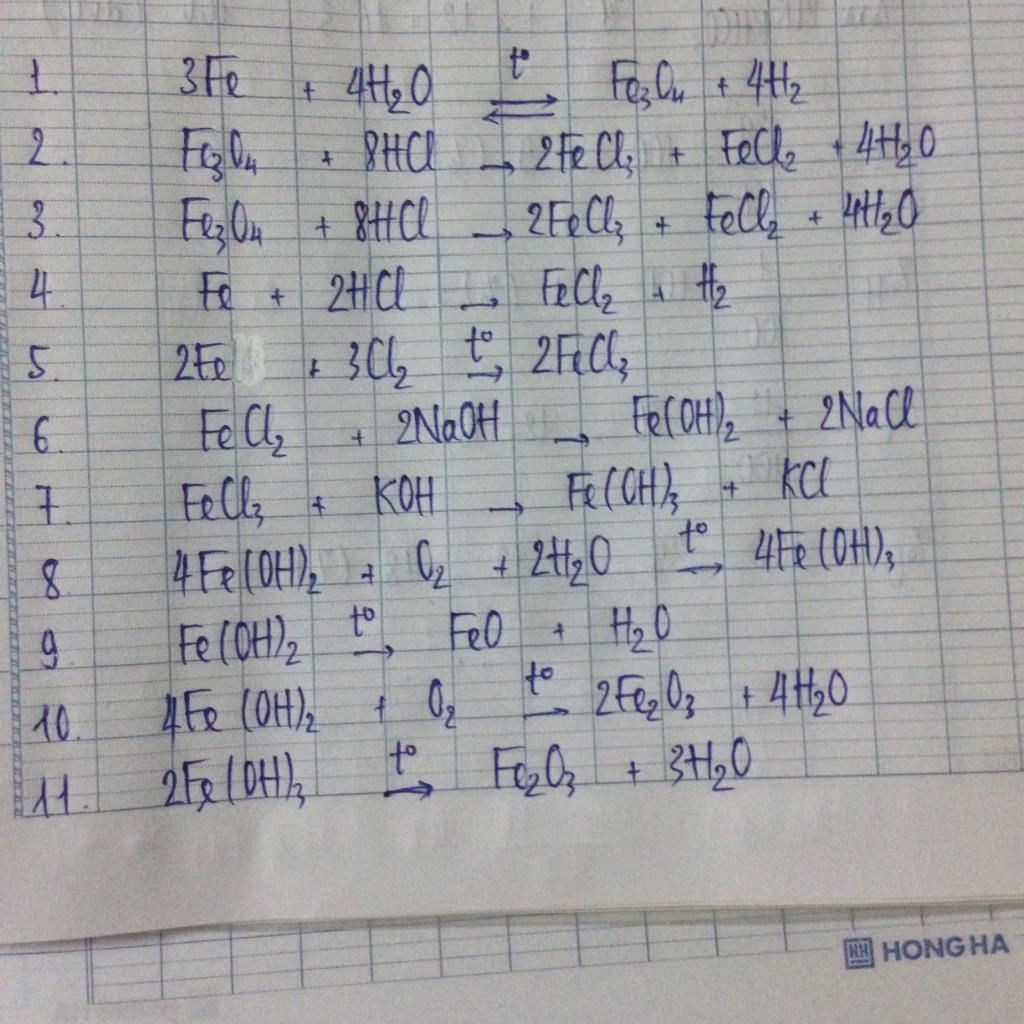 1. 3Fe + 4H₂O ⇌ t° Fe₃O₄ + 4H₂
2. Fe₃O₄ + 8HCl → 2FeCl₃ + FeCl₂ + 4H₂O
3. Fe₃O₄ + 8HCl → 2FeCl₃ + FeCl₂ + 4H₂O
4. Fe + 2HCl → FeCl₂ + H₂
5. 2Fe + 3Cl₂ t° → 2FeCl₃
6. FeCl₂ + 2NaOH → Fe(OH)₂ + 2NaCl
7. FeCl₃ + KOH → Fe(OH)₃ + KCl
8 4Fe(OH)₂ + O₂ + 2H₂O t° → 4Fe(OH)₃
9. Fe(OH)₂ t° → FeO + H₂O
10. 4Fe(OH)₂ + O₂ t° → 2Fe₂O₃ + 4H₂O
11. 2Fe(OH)₃ t° → Fe₂O₃ + 3H₂O
HONG HA